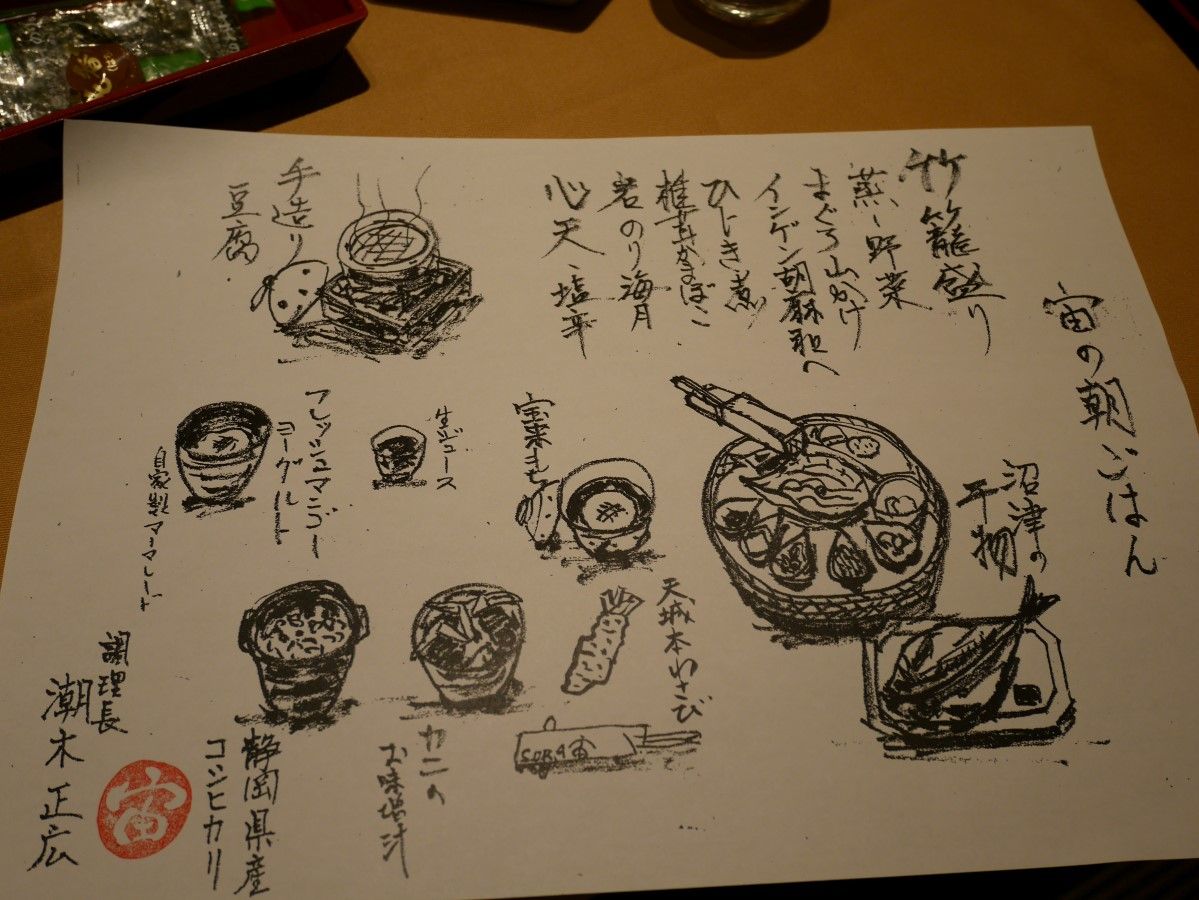 宙の朝ごはん
竹籠盛り
蒸し野菜
まぐろ山かけ
インゲン胡麻和へ
ひじき煮
椎茸かまぼこ
岩のり海月
心天、塩辛
手造り
豆腐
沼津の
干物
宝来むし
生ジュース
フレッシュマンゴー
ヨーグルト
自家製マーマレード
天城本わさび
SORA宙
カニの
お味噌汁
静岡県産
コシヒカリ
調理長
潮木正広
宙